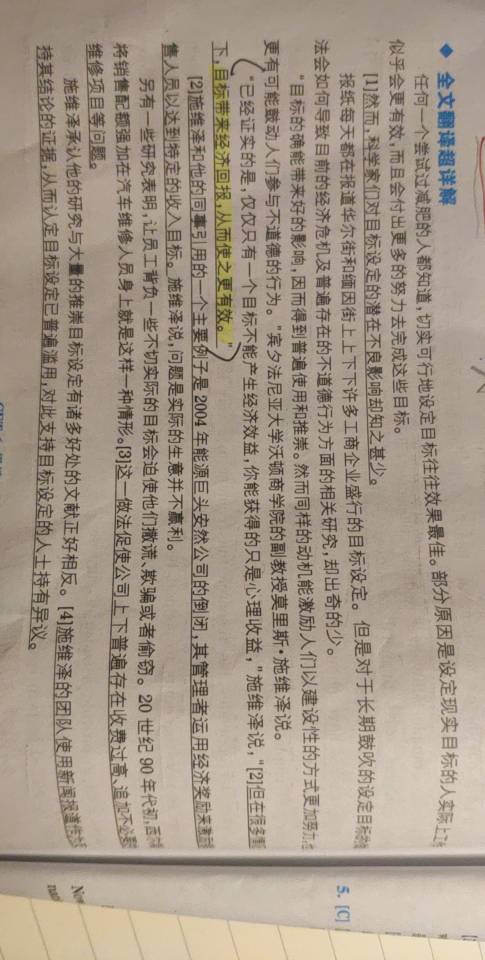 ◆ 全文翻译超详解
任何一个尝试过减肥的人都知道,切实可行地设定目标往往效果最佳。部分原因是设定现实目标的人实际上工作
似乎会更有效,而且会付出更多的努力去完成这些目标。
[1]然而,科学家们对目标设定的潜在不良影响却知之甚少。
报纸每天都在报道华尔街和缅因街上上下下许多工商企业盛行的目标设定。但是对于长期鼓吹的设定目标的
法会如何导致目前的经济危机及普遍存在的不道德行为方面的相关研究,却出奇的少。
"目标的确能带来好的影响,因而得到普遍使用和推崇。然而同样的动机能激励人们以建设性的方式更加努力,也
更有可能鼓动人们参与不道德的行为。"宾夕法尼亚大学沃顿商学院的副教授莫里斯·施维泽说。
"已经证实的是,仅仅只有一个目标不能产生经济效益,你能获得的只是心理收益,"施维泽说,"[2]但在很多
下,目标带来经济回报,从而使之更有效。"
[2]施维泽和他的同事引用的一个主要例子是2004年能源巨头安然公司的倒闭,其管理者运用经济奖励来
售人员以达到特定的收入目标。施维泽说,问题是实际的生意并不赢利。
另有一些研究表明,让员工背负一些不切实际的目标会迫使他们撒谎、欺骗或者偷窃。20世纪90年代初,西尔
将销售配额强加在汽车维修人员身上就是这样一种情形。[3]这一做法促使公司上下普遍存在收费过高、追加不必要
维修项目等问题。
施维泽承认他的研究与大量的推崇目标设定有诸多好处的文献正好相反。[4]施维泽的团队使用新闻报道作为
持其结论的证据,从而认定目标设定已普遍滥用,对此支持目标设定的人士持有异议。
5. [C]